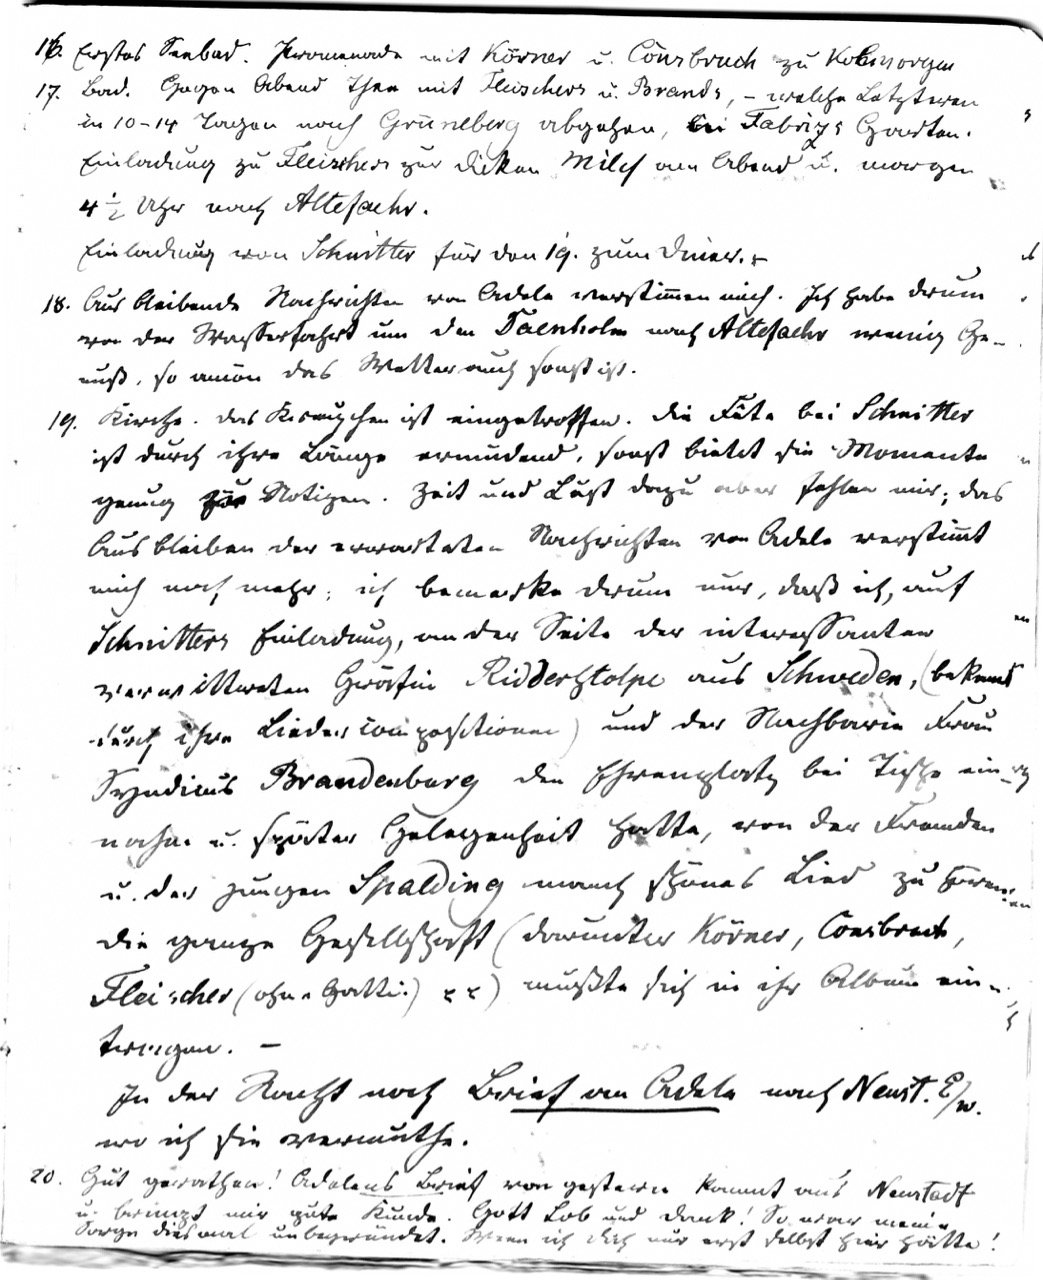 16. Erstes Seebad. Promenade mit Körner u. Coursbruch zu
17. Bad. Gegen Abend Thee mit Fleischers u. Brands, – welche Letzteren
in 10–14 Tagen nach Grüneberg abgehen, bei Fabrizs Garten.
Einladung zu Fleischers zur dicken Milch am Abend u. morgen
4 1/2 Uhr nach Altefaehr.
Einladung von Schnitter für den 19. zum Diner. –
18. Ausbleibende Nachrichten von Adele verstimmen mich. Ich habe drum
von der Wasserfahrt um den Daenholm nach Altefaehr wenig Ge-
nuß, so amön das Wetter auch sonst ist.
19. Kirche. Das ist eingetroffen. Die Fête bei Schnitter
ist durch ihre Länge ermüdend, sonst bietet sie Momente
genug zu Notizen. Zeit und Lust dazu aber fehlen mir; das
Ausbleiben der erwarteten Nachrichten von Adele verstimt
mich noch mehr; ich bemerke drum nur, daß ich, auf
Schnitters Einladung, an der Seite der interessanten
verwittweten Gräfin Ridderstolpe aus Schweden, (bekannt
durch ihre Liedercompositionen) und der Nachbarin Frau
Syndicus Brandenburg den Ehrenplatz bei Tische ein-
nahm u. später Gelegenheit hatte, von der Fremden
u. der jungen Spalding manch schönes Lied zu hören.
Die ganze Gesellschaft (darunter Körner, Coursbruch,
Fleischer (ohne Gattin) xx) mußte sich in ihr Album ein-
tragen. –
In der Nacht noch Brief an Adele nach Neust. E/w.
wo ich sie vermuthe.
20. Gut gerathen! Adelens Brief von gestern kommt aus Neustadt
u. bringt mir gute Kunde. Gott Lob und Dank! So war meine
Sorge diesmal unbegründet. Wenn ich dich nur erst selbst hier hätte!